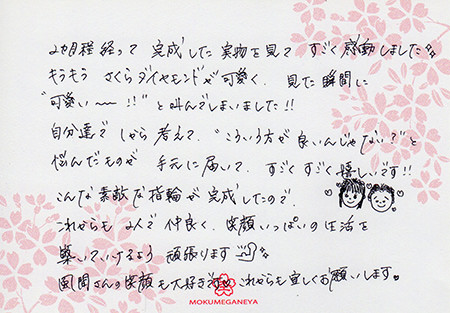 2ヵ月程経って 完成した 実物を見て すごく感動しました
もうもう さくらダイヤモンドが可愛く、見た瞬間に
"可愛い〜!!"と叫んでしまいました!!
自分達で しから 考えて、"こういう方が良いんじゃない?"と
悩んだものが 手元に届いて、すごくすごく嬉しいです!!
こんな素敵な指輪が完成したので、
これからも 2人で 仲良く、笑顔いっぱいの生活を
築いていけるよう 頑張ります
風間さんの笑顔も大好きです これからも宜しくお願いします
MOKUMEGANEYA